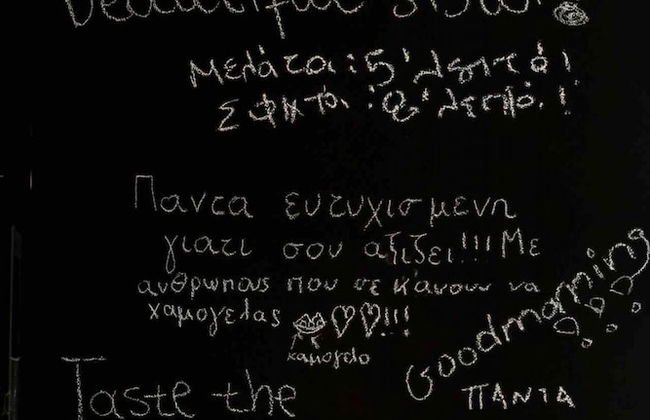 Beautiful
Μελάτα: 5' λεπτά!
Σφικτά: 8' λεπτά!
Παντα ευτυχισμενη
γιατι σου αξιζει!!! Με
ανθρωπους που σε κάνουν να
χαμογελας ♡♡!!!
χαμογελο
Goodmorning
Taste the
ΠΑΝΤΑ